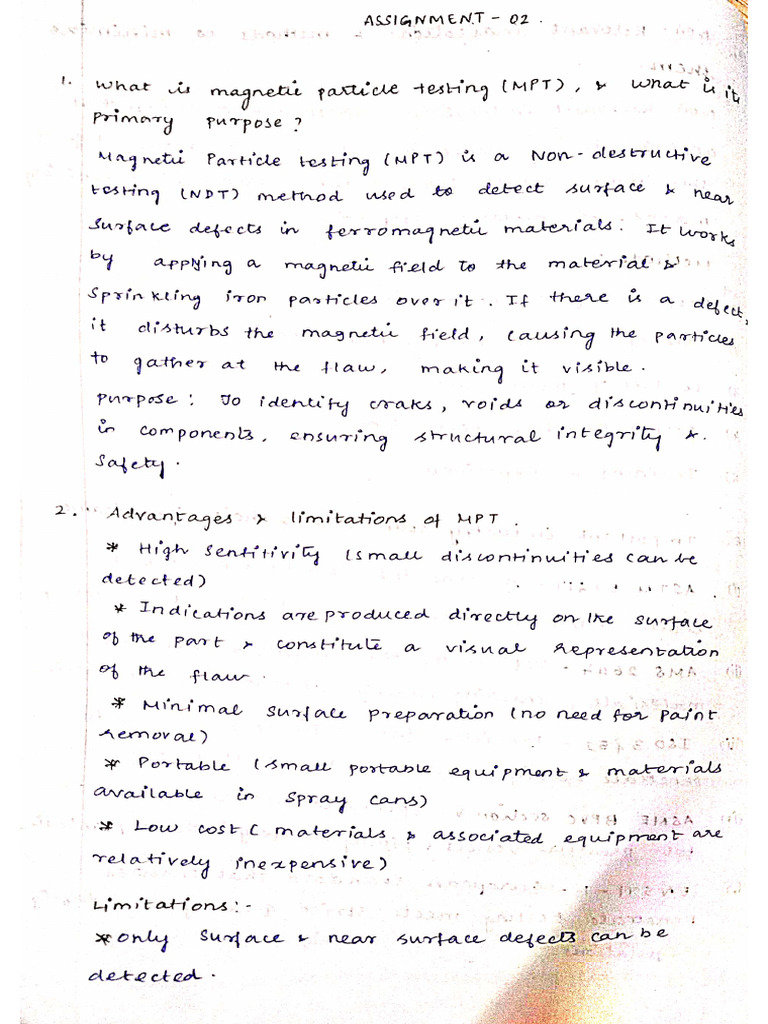 ASSIGNMENT - 02.
1. What is magnetic particle testing (MPT), & what is it
primary purpose?
Magnetic Particle testing (MPT) is a Non-destructive
testing (NDT) method used to detect surface & near
surface defects in ferromagnetic materials. It works
by applying a magnetic field to the material &
sprinkling iron particles over it. If there is a defect,
it disturbs the magnetic field, causing the particles
to gather at the flaw, making it visible.
purpose: To identify craks, voids or discontinuities
in components, ensuring structural integrity &
safety.
2. Advantages & limitations of MPT.
* High sentitivity (small discontinuities can be
detected)
* Indications are produced directly on the surface
of the part & constitute a visual representation
of the flaw.
* Minimal surface preparation (no need for paint
removal)
* Portable (small portable equipment & materials
available in spray cans)
* Low cost ( materials & associated equipment are
relatively inexpensive)
Limitations:-
* only surface & near surface defects can be
detected.